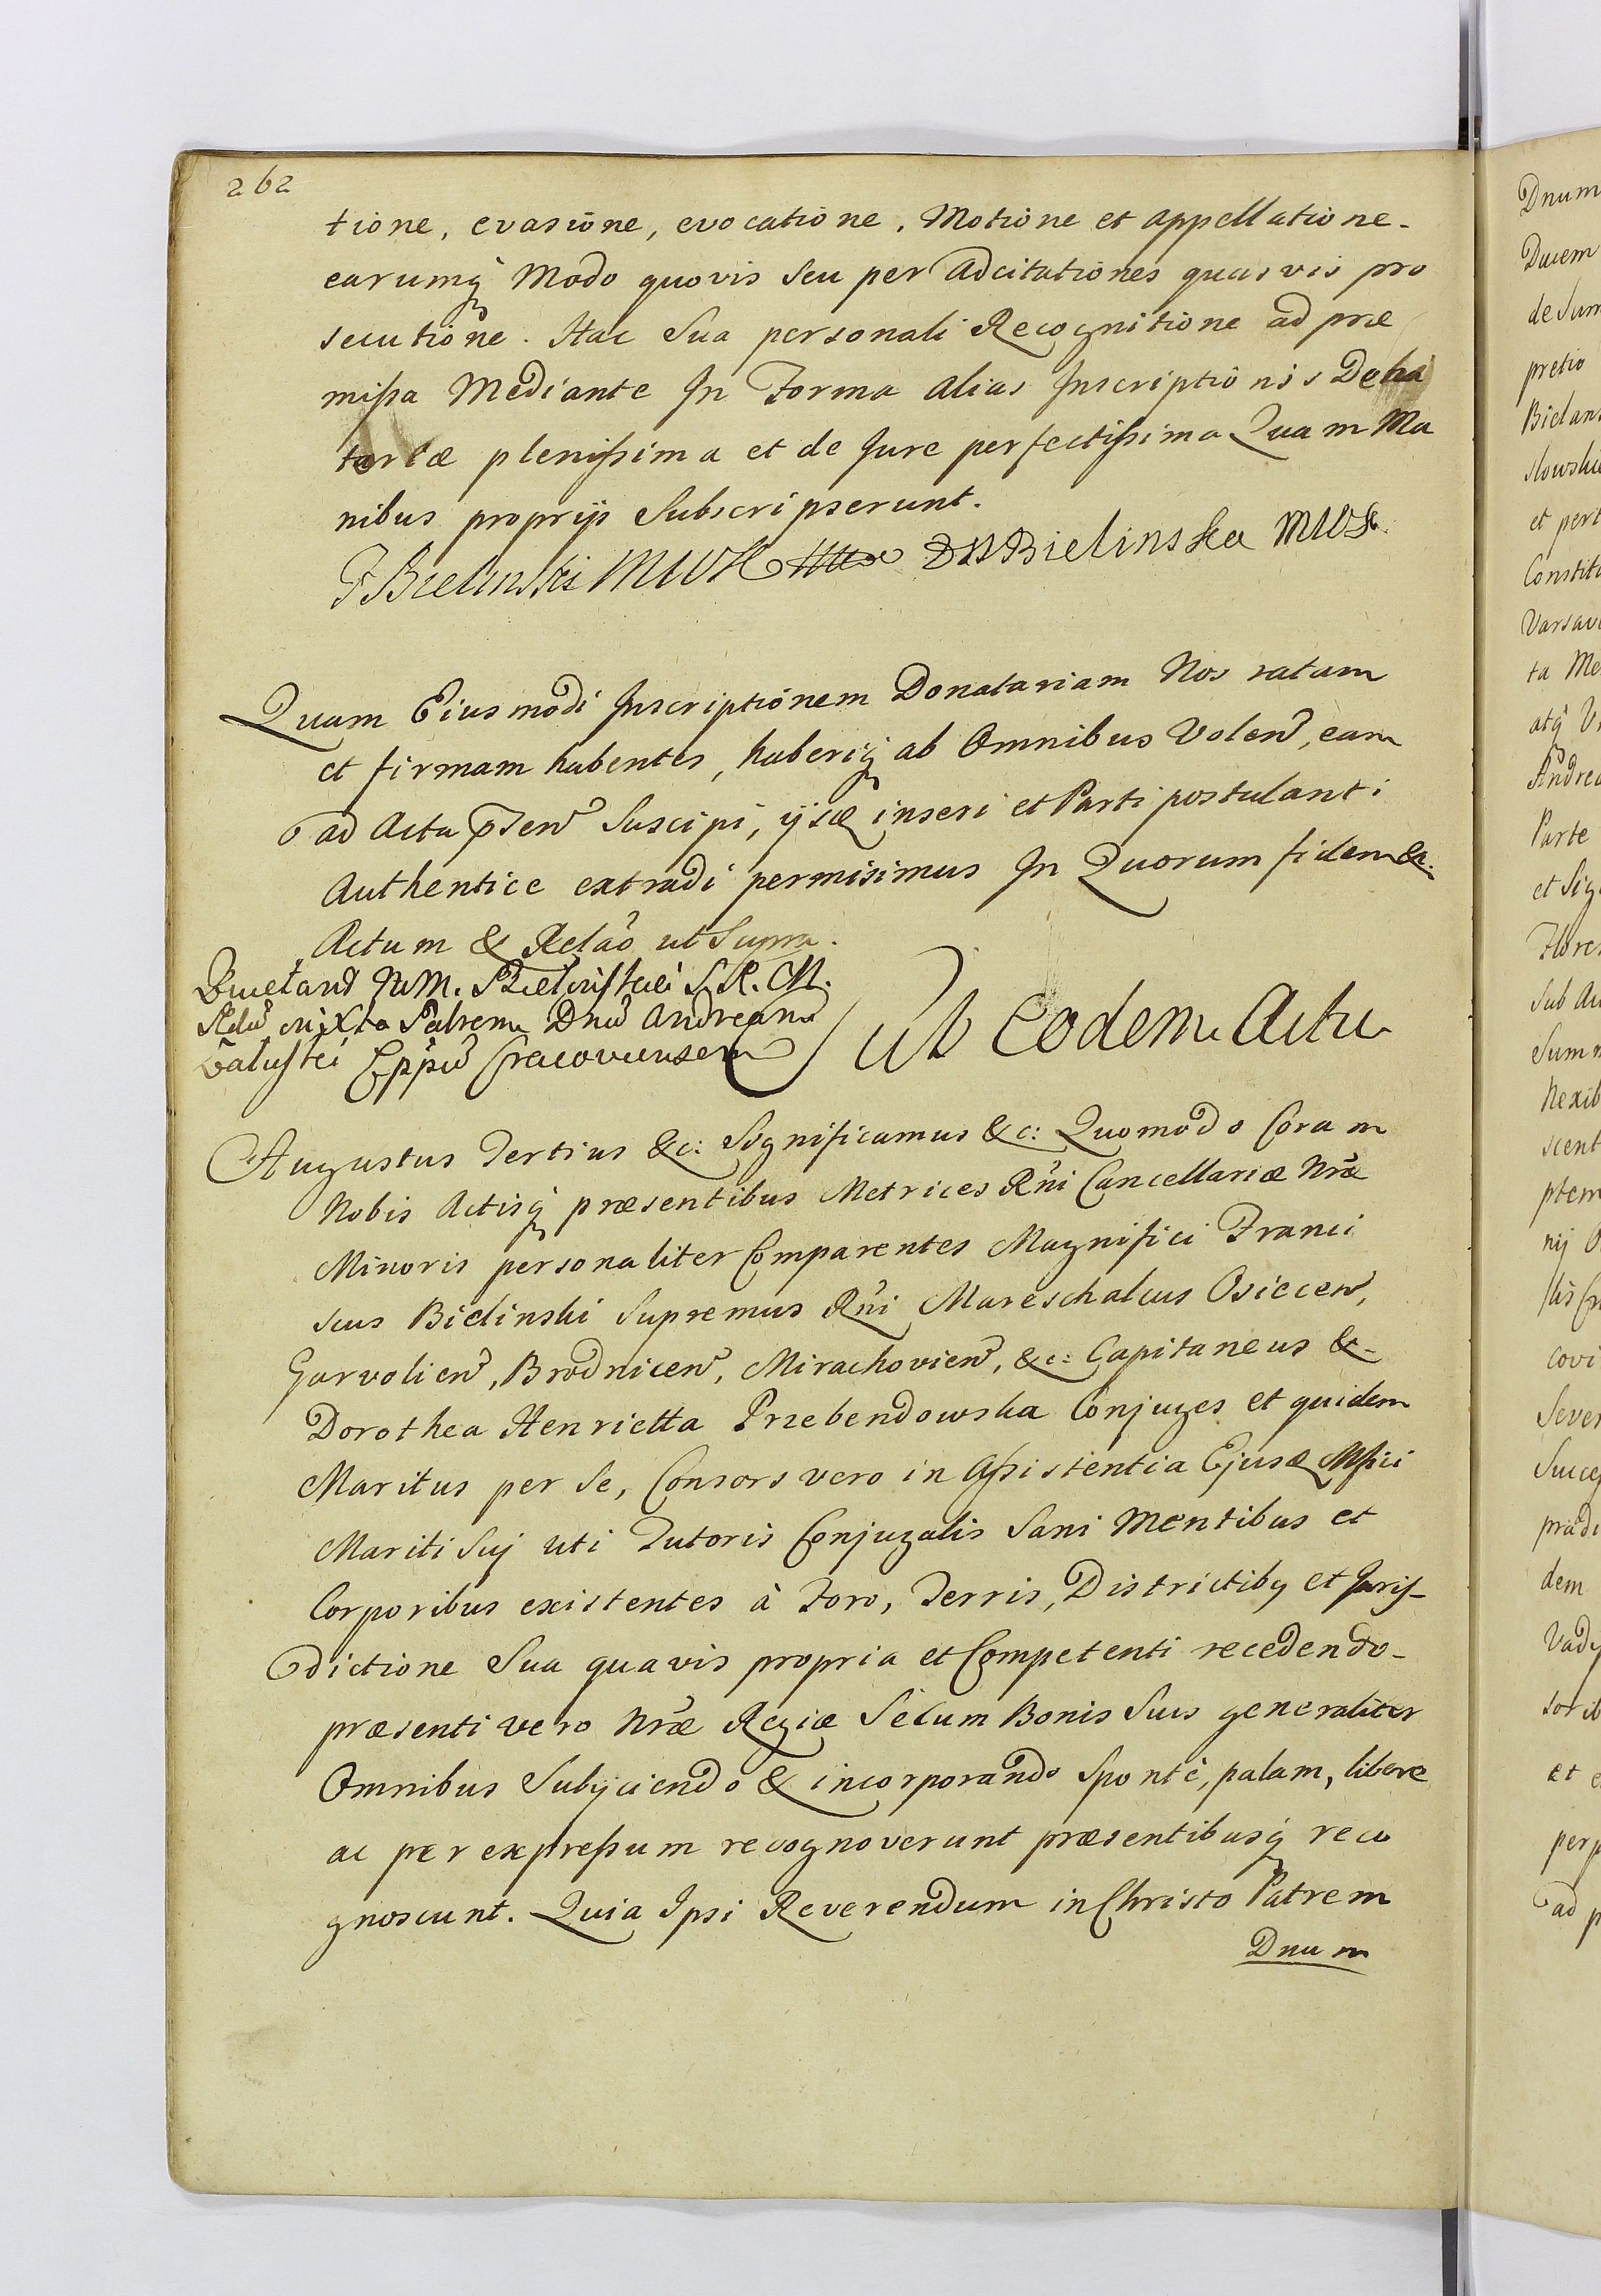 262
tione, evasione, evocatione, Motione et appellatione
earumq̃ Modo quovis seu per Adcitationes quasvis pro
secutione. Hac Sua personali Recognitione ad præ
missa Mediante In Forma alias Inscriptionis Dona
tariæ plenissima et de Jure perfectissima Quam Ma
nibus proprijs Subscripserunt.
F Bielinski MWK DH Bielinska MWK
Quam Eiusmodi Inscriptionem Donatariam Nos ratam
et firmam habentes, haberiq̃ ab Omnibus Volen̄, eam
ad Acta p̄sen̄ Suscipi, ijsq̃ inseri et Parti postulanti
Authentice extradi permisimus In Quorum fidem &c.
Actum & Relāō ut Supra.
Quietanō MM. Bielinsciei S. R. M.
Rdū in Xto Patrem Dnū Andream
Załuski Eppū Cracoviensem
Sub Eodem Actu
Augustus Tertius &c: Significamus &c: Quomodo Coram
Nobis Actisq̃ præsentibus Metrices Rñi Cancellariæ Nr̃æ
Minoris personaliter Comparentes Magnifici Franci
scus Bielinski Supremus Rñi Mareschalcus Osiecen̄,
Garvolien̄, Brodnicen̄, Mirachovien̄, &c: Capitaneus &
Dorothea Henrietta Przebendowska Conjuges et quidem
Maritus per Se, Consors vero in Assistentia Ejusd Mfici
Mariti Suj uti Tutoris Conjugalis Sani Mentibus et
Corporibus existentes à Foro, Terris, Districtibq et Juris-
dictione Sua quavis propria et Competenti recedendo
præsenti vero Nr̃æ Regiæ Secum Bonis Suis generaliter
Omnibus Subijciendo & incorporando Sponté, palam, libere
ac per expressum recognoverunt præsentibusq̃ reco
gnoscunt. Quia Ipsi Reverendum in Christo Patrem
Dnum
Dnum
Ducem
de Sum
pretio
Bielans
slowsku
et pert
Constit
Varsavi
ta Me
atq̃ V
Andrea
Parte
et Sig
Flore
Sub Au
Summ
Nexib
scent
ptem
nij
covi
Sever
Succe
prædi
dem
Vady
sorib
et e
perp
ad p